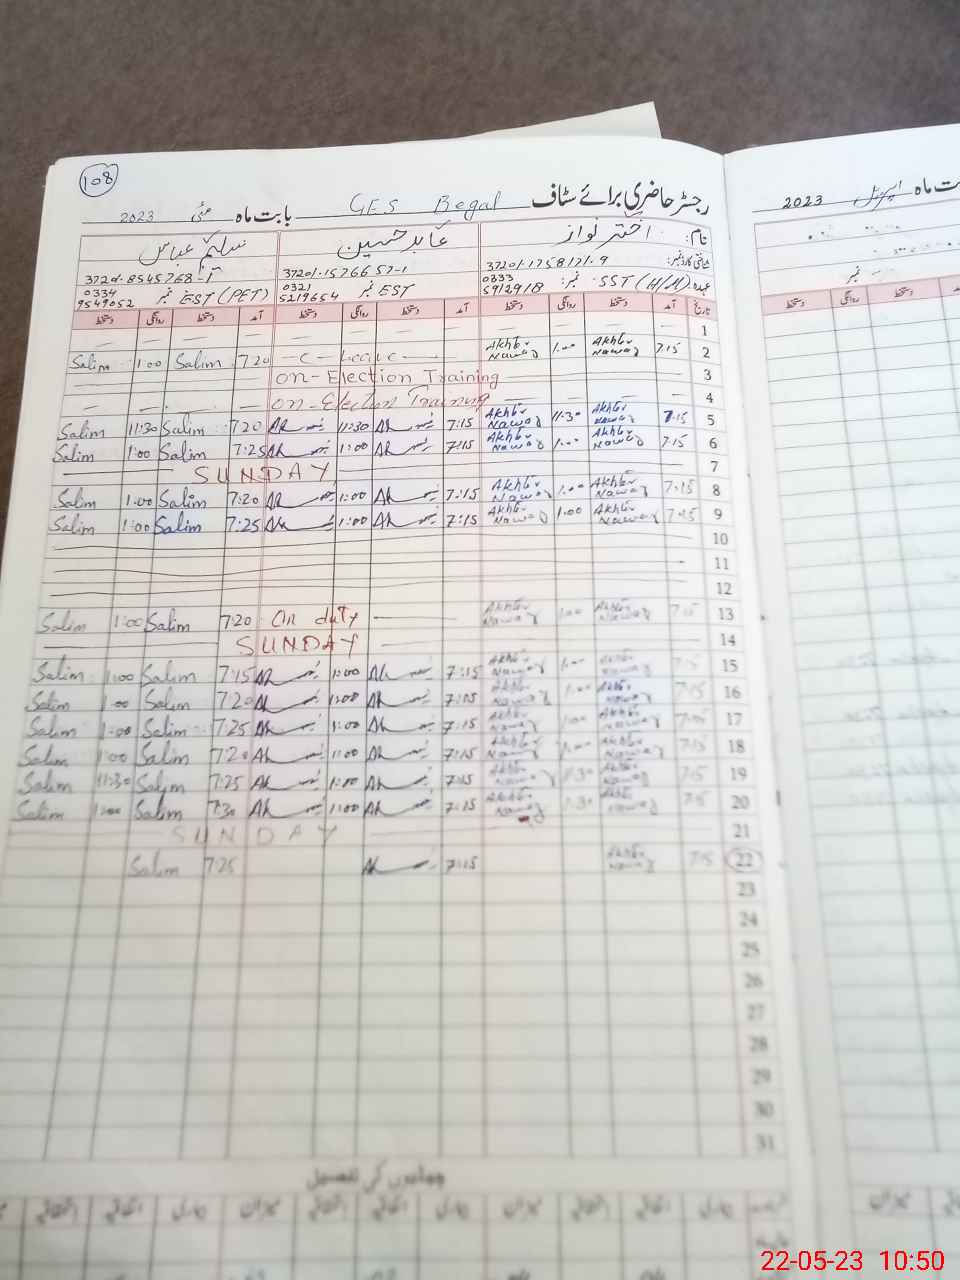 108
رجسٹر حاضری برائے سٹاف GES Begal بابت ماہ مئی 2023
نام: اختر نواز عابد حسین سلیم عباس
شناختی کارڈ نمبر: 37201-1758171-9 37201-1576657-1
عہدہ: SST (H/M) نمبر: 0333 5912918 EST نمبر 0321 5219654 EST (PET) نمبر 0334 9549052
تاریخ آمد دستخط روانگی دستخط آمد دستخط روانگی دستخط آمد دستخط روانگی دستخط
1
Salim 1:00 Salim 7:20 — C — Leave — Akhtar Nawaz 1:00 Akhtar Nawaz 7:15 2
on-Election Training 3
on-Election Training 4
Salim 11:30 Salim 7:20 11:30 7:15 Akhtar Nawaz 11:30 Akhtar Nawaz 7:15 5
Salim 1:00 Salim 7:25 1:00 7:15 Akhtar Nawaz 1:00 Akhtar Nawaz 7:15 6
SUNDAY 7
Salim 1:00 Salim 7:20 1:00 7:15 Akhtar Nawaz 1:00 Akhtar Nawaz 7:15 8
Salim 1:00 Salim 7:25 1:00 7:15 Akhtar Nawaz 1:00 Akhtar Nawaz 7:15 9
10
11
12
Salim 1:00 Salim 7:20 On duty Akhtar Nawaz 1:00 Akhtar Nawaz 7:15 13
SUNDAY 14
Salim 1:00 Salim 7:15 1:00 7:15 Akhtar Nawaz 1:00 Akhtar Nawaz 7:15 15
Salim 1:00 Salim 7:20 1:00 7:15 Akhtar Nawaz 1:00 Akhtar Nawaz 7:15 16
Salim 1:00 Salim 7:25 1:00 7:15 Akhtar Nawaz 1:00 Akhtar Nawaz 7:15 17
Salim 1:00 Salim 7:20 1:00 7:15 Akhtar Nawaz 1:00 Akhtar Nawaz 7:15 18
Salim 11:30 Salim 7:25 1:00 7:15 Akhtar Nawaz 11:30 Akhtar Nawaz 7:15 19
Salim 1:00 Salim 7:30 1:00 7:15 Akhtar Nawaz Akhtar Nawaz 7:15 20
SUNDAY 21
Salim 7:25 7:15 Akhtar Nawaz 7:15 22
23
24
25
26
27
28
29
30
31
جماعتوں کی تفصیل
بابت ماہ اپریل 2023
22-05-23 10:50